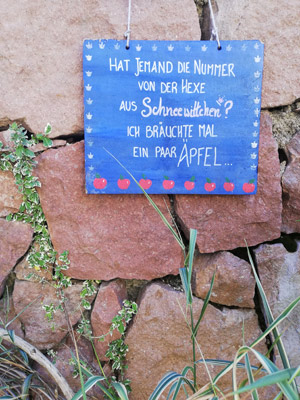 HAT JEMAND DIE NUMMER
VON DER HEXE
AUS Schneewittchen?
ICH BRÄUCHTE MAL
EIN PAAR ÄPFEL...